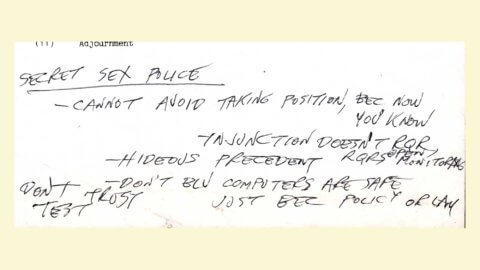 (11) Adjournment
SECRET SEX POLICE
- CANNOT AVOID TAKING POSITION, BEC NOW
YOU KNOW
- INJUNCTION DOESN'T RQR
- HIDEOUS PRECEDENT RQRS OPEN, MONITORING
- DON'T BLV COMPUTERS ARE SAFE
JUST BEC POLICY OR LAW
DON'T TRUST
TEST